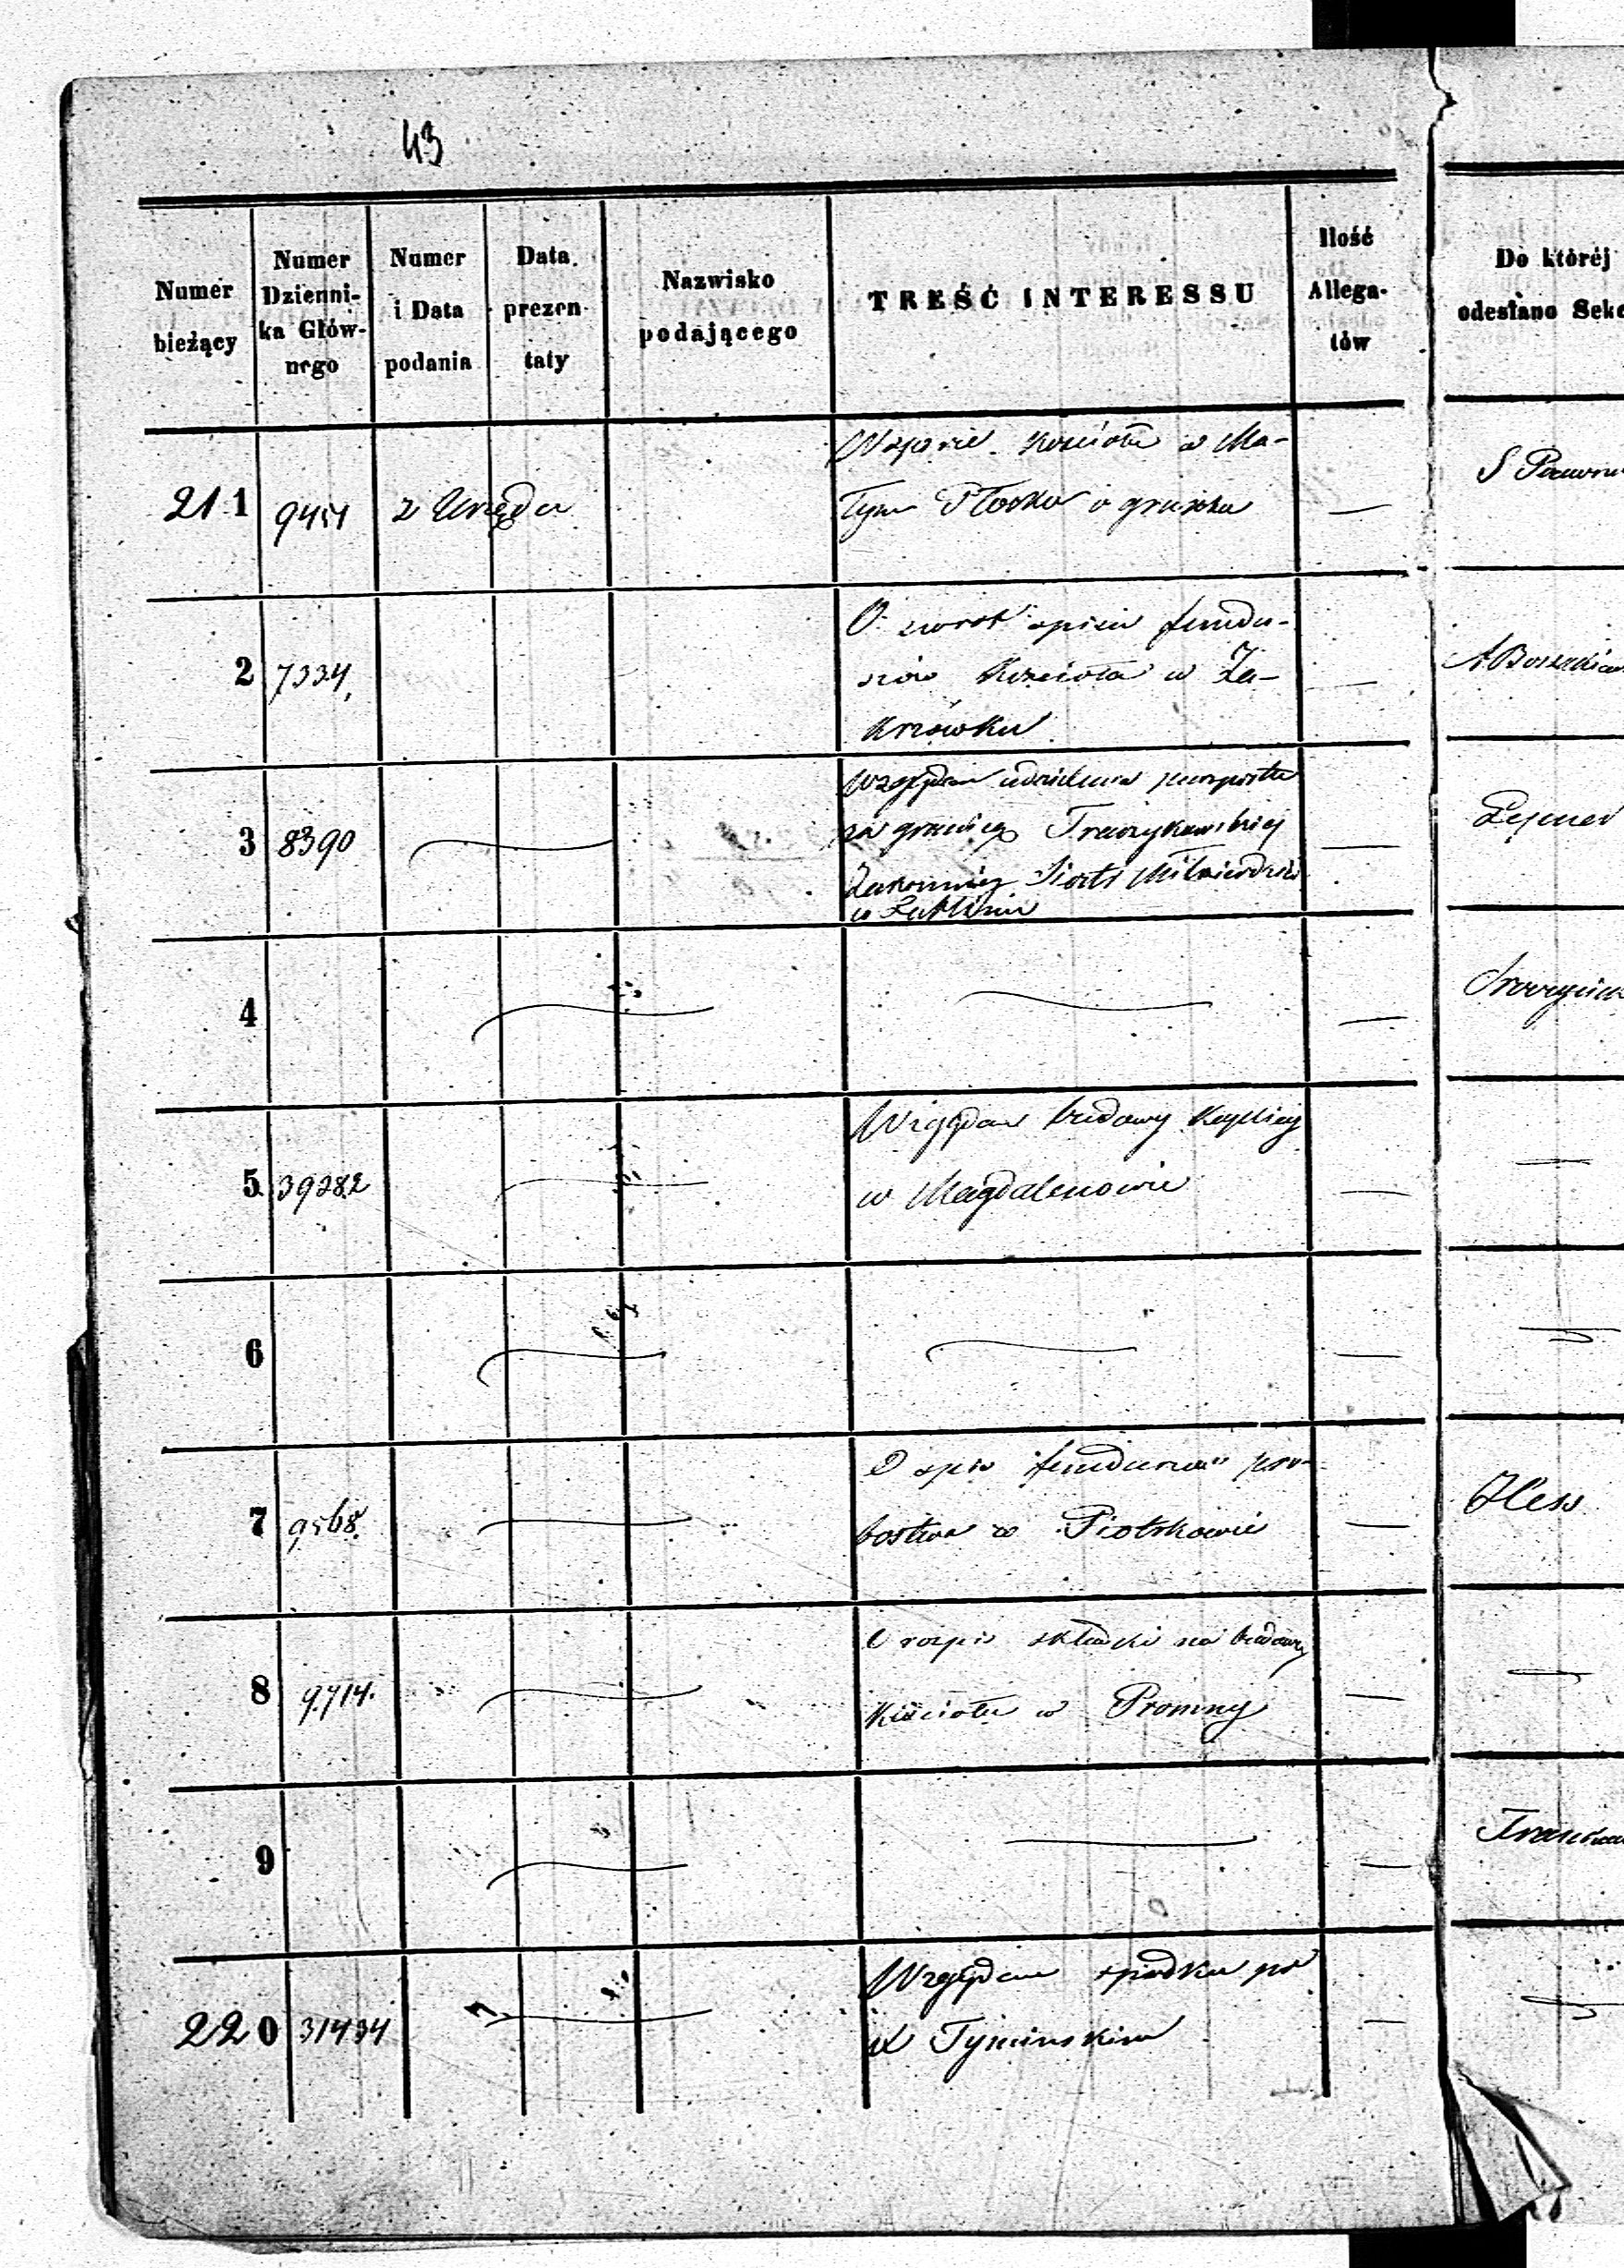 43
Numer bieżący
Numer Dzienni-ka Głów-nego
Numer i Data podania
Data prezen-taty
Nazwisko podającego
TREŚĆ INTERESSU
Ilość Allega-tów
Do której odesłano Sekc
211 9451 z Urzędu
kościoła w Ma-
łym Płocku o grunta
S
2 7334
O zwrot spisu fundu-
szów Kościoła w Za-
krzówku
3 8390
Względem udzielenia paszportu
za granicę
Zakonnicy Siostr Miłosierdzia
w Lublinie
4
5 39282
Względem budowy Kaplicy
w Magdalenowie
6
7 9568
O spis funduszów pro-
bostwa w Piotrkowie
Hess
8 9714.
O rozpis składki na budowę
Kościoła w Promny
9
220 31434
Względem spadku po
X Tymińskim